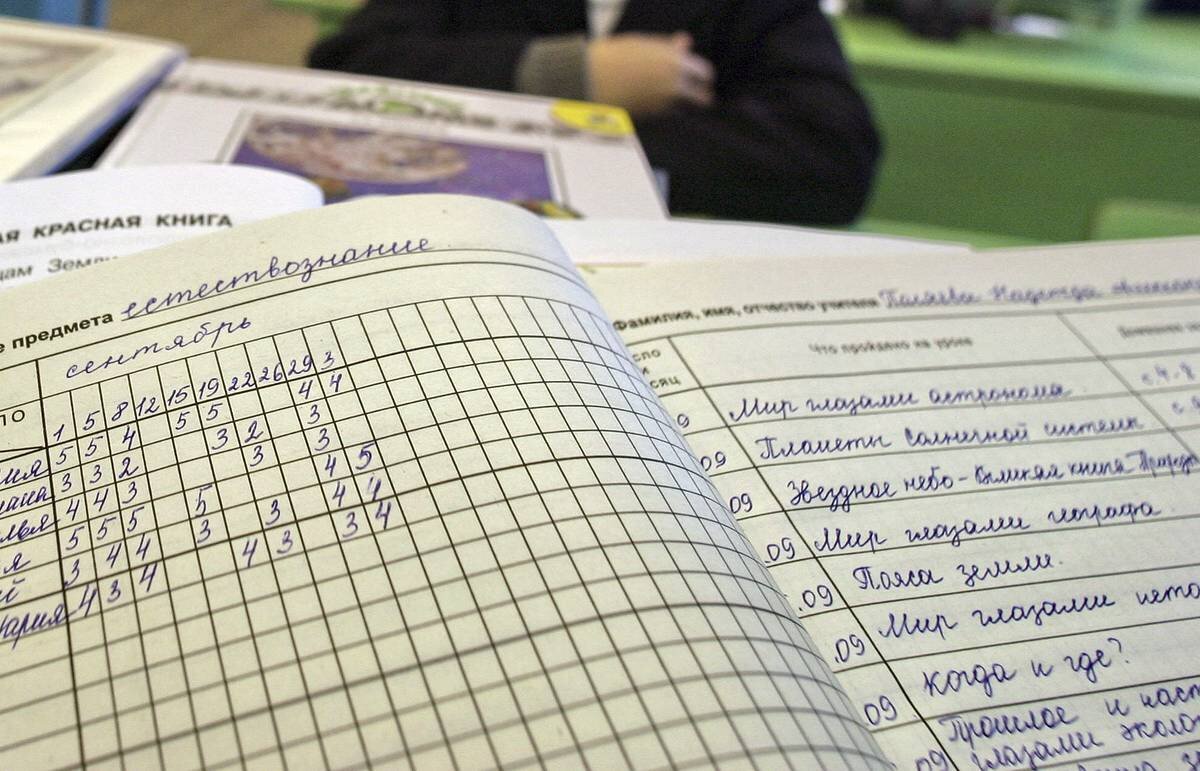 АЯ КРАСНАЯ КНИГА
цам Земли
е предмета естествознание
сентябрь
1 5 8 12 15 19 22 26 29 3
ия 5 5 4 5 5 4 4
3 3 2 3 2 3
4 4 3 3 3
я 5 5 5 5 4 5
й 3 4 4 3 3 4 4
4 3 4 4 3 3 4
Фамилия, имя, отчество учителя Надежда
Что пройдено на уроке
сло
и
сяц
9 Мир глазами астронома. с. 4-8
09 Планеты солнечной системы
09 Звездное небо - Великая книга Природы
.09 Мир глазами географа.
.09 Пояса земли.
.09 Мир глазами исто
09 Когда и где?
09 Прошлое и наст
глазами эколо